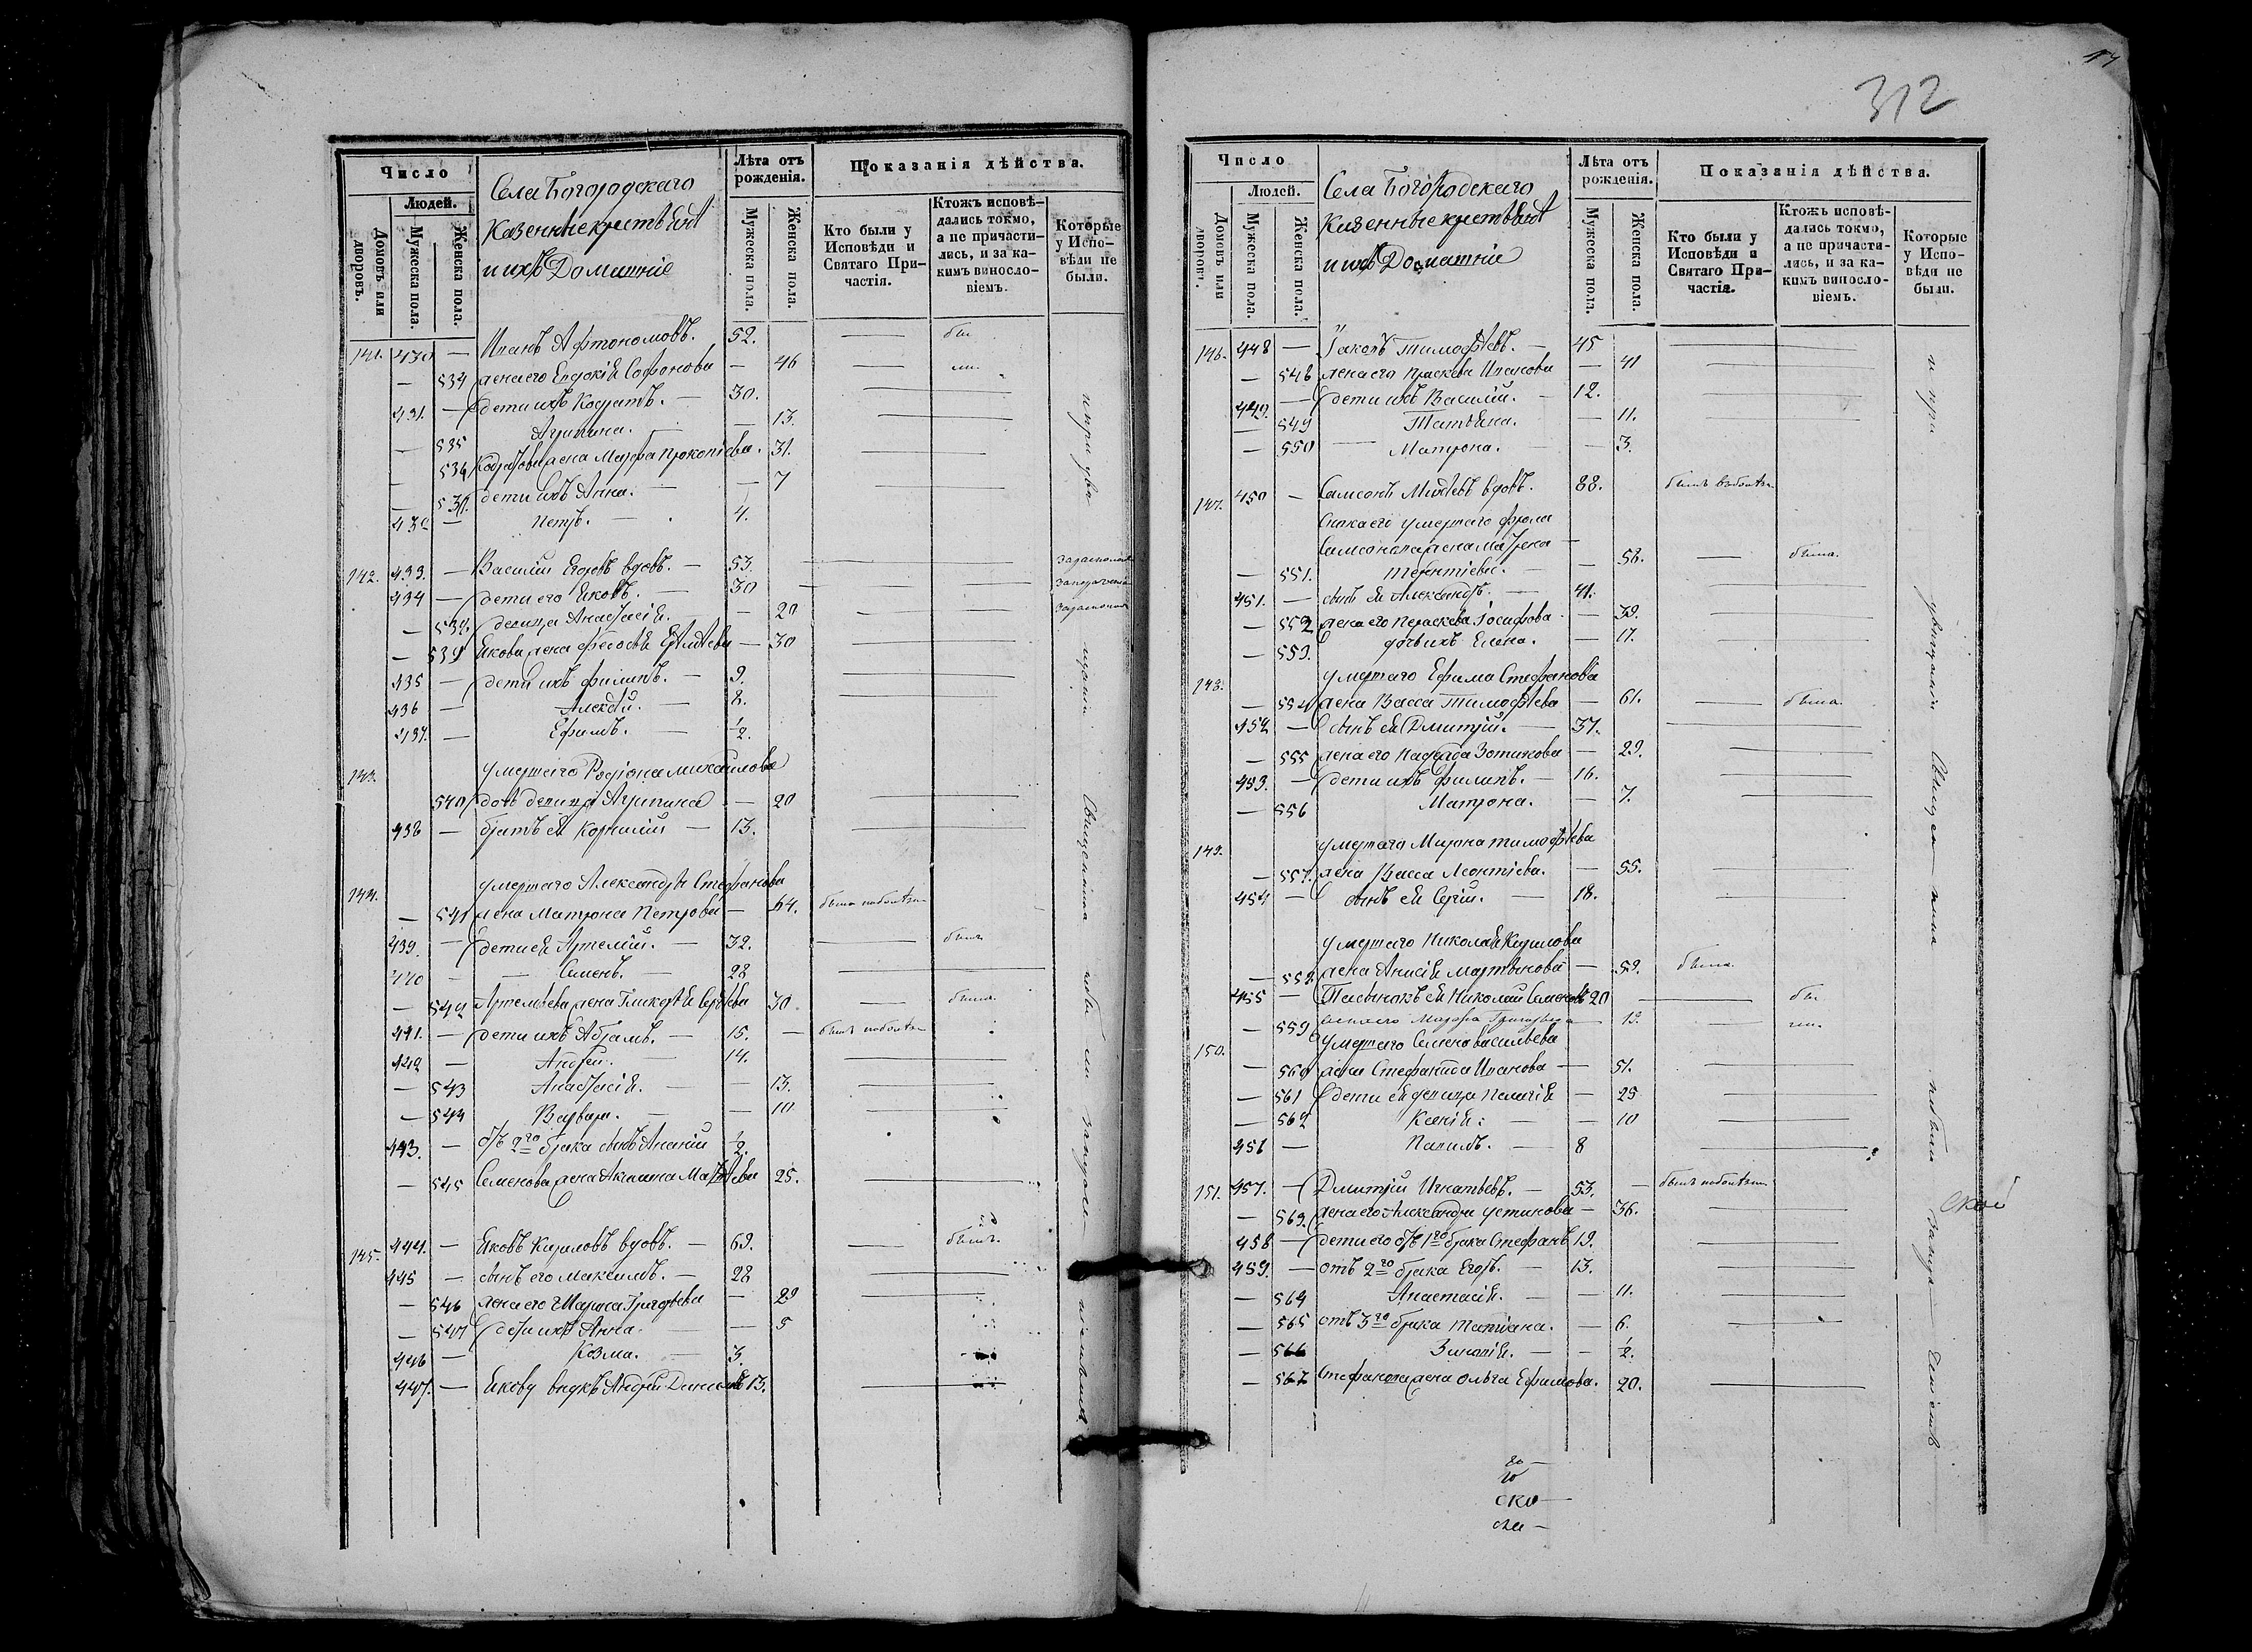 Число
Людей.
Домовъ или дворовъ.
Мужеска пола.
Женска пола.
Села Богородскаго
Казенные крестьяне
и ихъ Домашніе
Лѣта отъ рожденія.
Мужеска пола.
Женска пола.
Показанія дѣйства.
Кто были у Исповѣди и Святаго Причастія.
Ктожъ исповѣ-
дались токмо,
а не причасти-
лись, и за ка-
кимъ винослo-
віемъ.
Которые
у Испо-
вѣди не
были.
141. 430 — Иванъ Афтономовъ. 52.
— 534 жена его Евдокія Софонова — 46
431. — дети ихъ Кодратъ. — 30.
— 535 Агрипина. — 13.
536 Кодратова жена Марфа Прокопіева. 31.
— 537. дети ихъ Анна. — 7
432 — Петръ. — 4.
142. 433. — Василій Егоровъ вдовъ. — 53.
434 — дети его Яковъ. — 30
— 538. девица Анастасія. — 20
— 539 Якова жена Феодосья — 30
435 — дети ихъ Филипъ. — 9.
436 — Алексѣй. — 8.
437. — Ефимъ. — 1/2.
143. умершаго Родіона Михаилова
540 дочь девица Агрипина — 20
438 — братъ ея Корнилій — 13.
144. умершаго Александра Стефанова
— 541 жена Матрона Петрова — 64. была
439. — дети ея Артемій. — 32. былъ
440 — Семенъ. — 28
— 542 Артемьева жена Гликерія Сергѣева 30. была
441. — дети ихъ Абрамъ. — 15. — былъ
442 — Андрей. 14.
— 543 Анастасія. — 13.
— 544 Варвара. — 10
443. — отъ 2го брака сынъ Ананій 1/2.
— 545 Семенова жена Акилина Матвѣева 25.
145. 444. — Яковъ Кириловъ вдовъ. — 69. былъ
445 — сынъ его Максимъ. — 28
— 546 жена его Марѳа Григорьева — 29
— 547 дети ихъ Анна. — 5
446 — Козма. — 3.
447. — Якову внукъ Андрей 13.
312
Число
Людей.
Домовъ или дворовъ.
Мужеска пола.
Женска пола.
Села Богородскаго
Казенные крестьяне
и ихъ Домашніе
Лѣта отъ рожденія.
Мужеска пола.
Женска пола.
Показанія дѣйства.
Кто были у Исповѣди и Святаго Причастія.
Ктожъ исповѣ-
дались токмо,
а не причасти-
лись, и за ка-
кимъ винослo-
віемъ.
Которые
у Испо-
вѣди не
были.
146. 448 — Іаковъ Тимофѣевъ. — 45
— 548 жена его Праскева Иванова — 41
449. — дети ихъ Василій. — 12.
— 549 Татьяна. — 11.
— 550 — Матрона. — 3.
147. 450 — Самсонъ вдовъ. 88. былъ
Сынка его умершаго Фрола
Самсонова жена Матрена
— 551. Терентіева. — 58. — была.
451. — сынъ ея Александръ. — 41.
— 552 жена его Параскева Іосифова — 39.
— 553. дочь ихъ Елена. — 17.
148. умершаго Ефима Стефанова
— 554 жена Васса Тимофѣева — 61. — была.
452 — сынъ ея Дмитрій. — 37.
— 555 жена его Надежда Зотикова — 29.
453. — дети ихъ Филипъ. — 16.
— 556 Матрона. — 7.
149. умершаго Мирона Тимофѣева
— 557. жена Васса Леонтіева. — 55.
454 — сынъ ея Сергій. — 18.
умершаго Николая Кирилова
— 558. жена Анисія Мартынова — 59. была.
455 — ея Николай Семеновъ 20
— 559 жена его Марфа Григорьева — 19.
150. умершаго Семена Васильева
— 560 жена Стефанида Иванова — 51.
— 561 дети ея девица Пелагія — 25
— 562 Ксенія: — 10
456 — 8
151. 457. — Дмитрій Игнатьевъ. — 53. — былъ
— 563. жена его Александра Устинова — 36.
458 — дети его отъ 1го брака Стефанъ 19.
459. — отъ 2го брака Егоръ. — 13.
— 564 Анастасія. — 11.
— 565 отъ 3го брака Татіана. — 6.
— 566 — 1/2.
— 567 Стефанова жена Ольга Ефимова. 20.